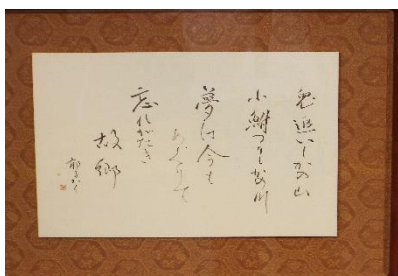 兎追いしかの山
小鮒つりしかの川
夢は今も
めぐりて
忘れがたき
故郷